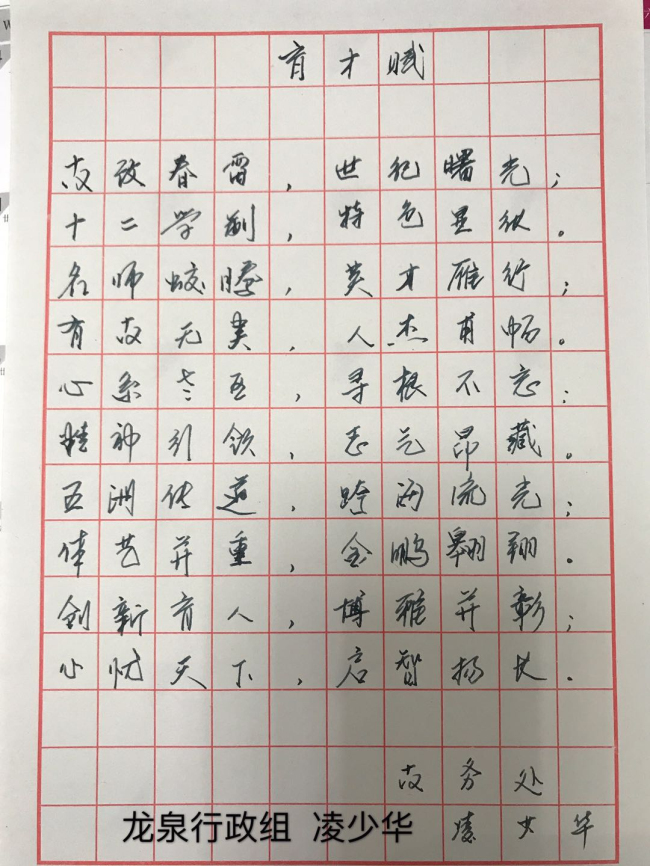 育才赋
教改春雷，世纪曙光；
十二学制，特色显纵。
名师蛟腾，英才雁行；
有教无类，人杰甫畅。
心系老区，寻根不忘；
精神引领，志气昂藏。
五洲传道，跨海流光；
体艺并重，金鹏翱翔。
创新育人，博雅并彰；
心忧天下，启智扬长。
教务处
龙泉行政组 凌少华
凌少华